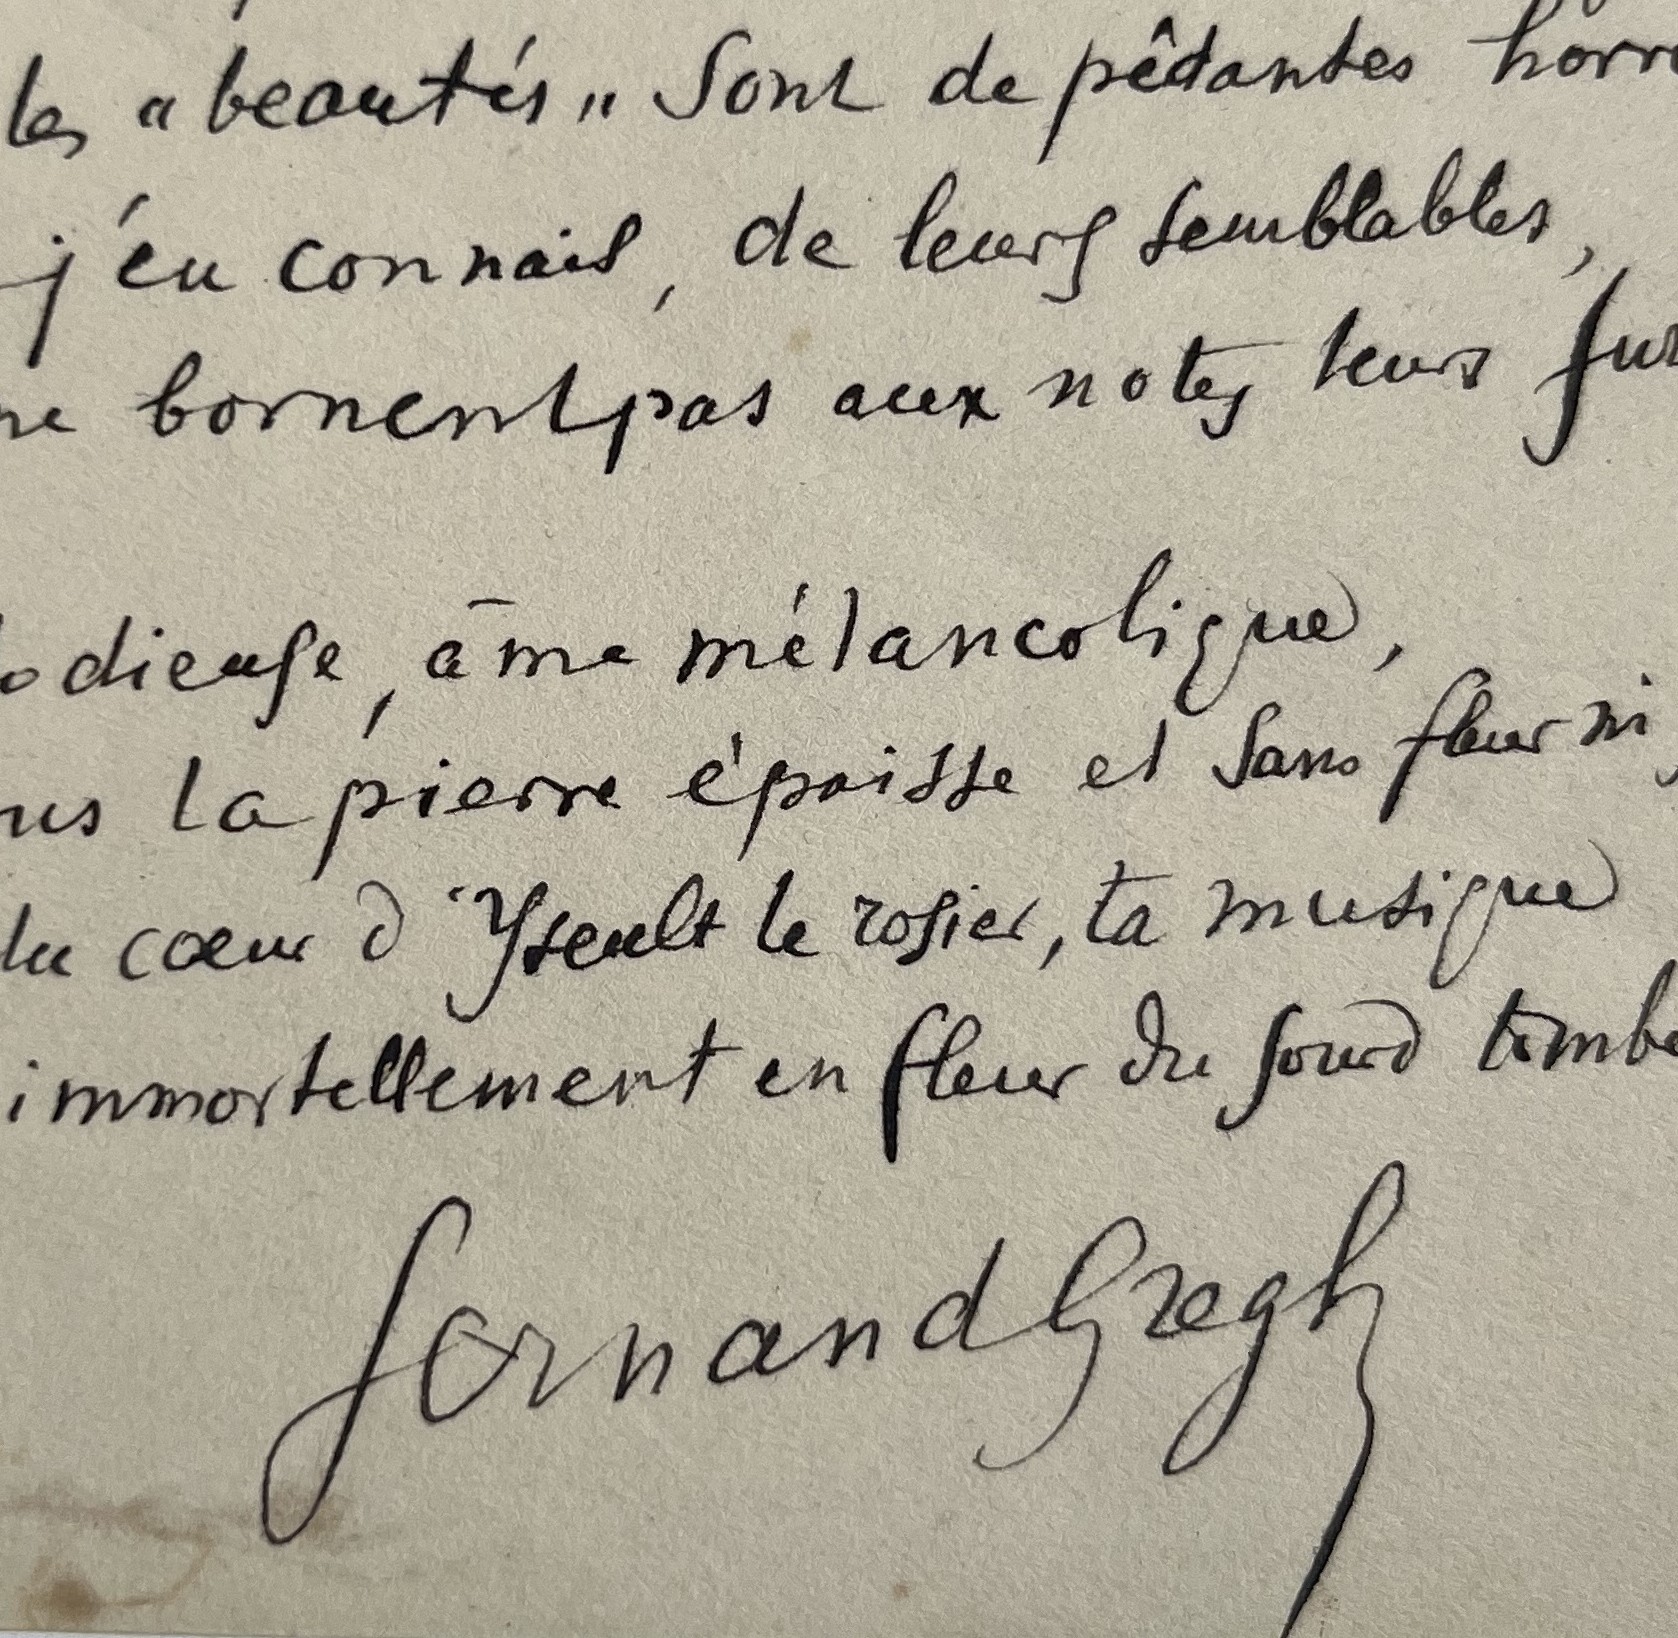 les "beautés" sont de pédantes horr
j'en connais, de leurs semblables,
ne bornent pas aux notes leurs fur
odieuse, âme mélancolique,
us la pierre épaisse et sans fleur ni
du cœur d'Yseult le rosier, ta musique
immortellement en fleur du sourd tombe
Fernand Gregh